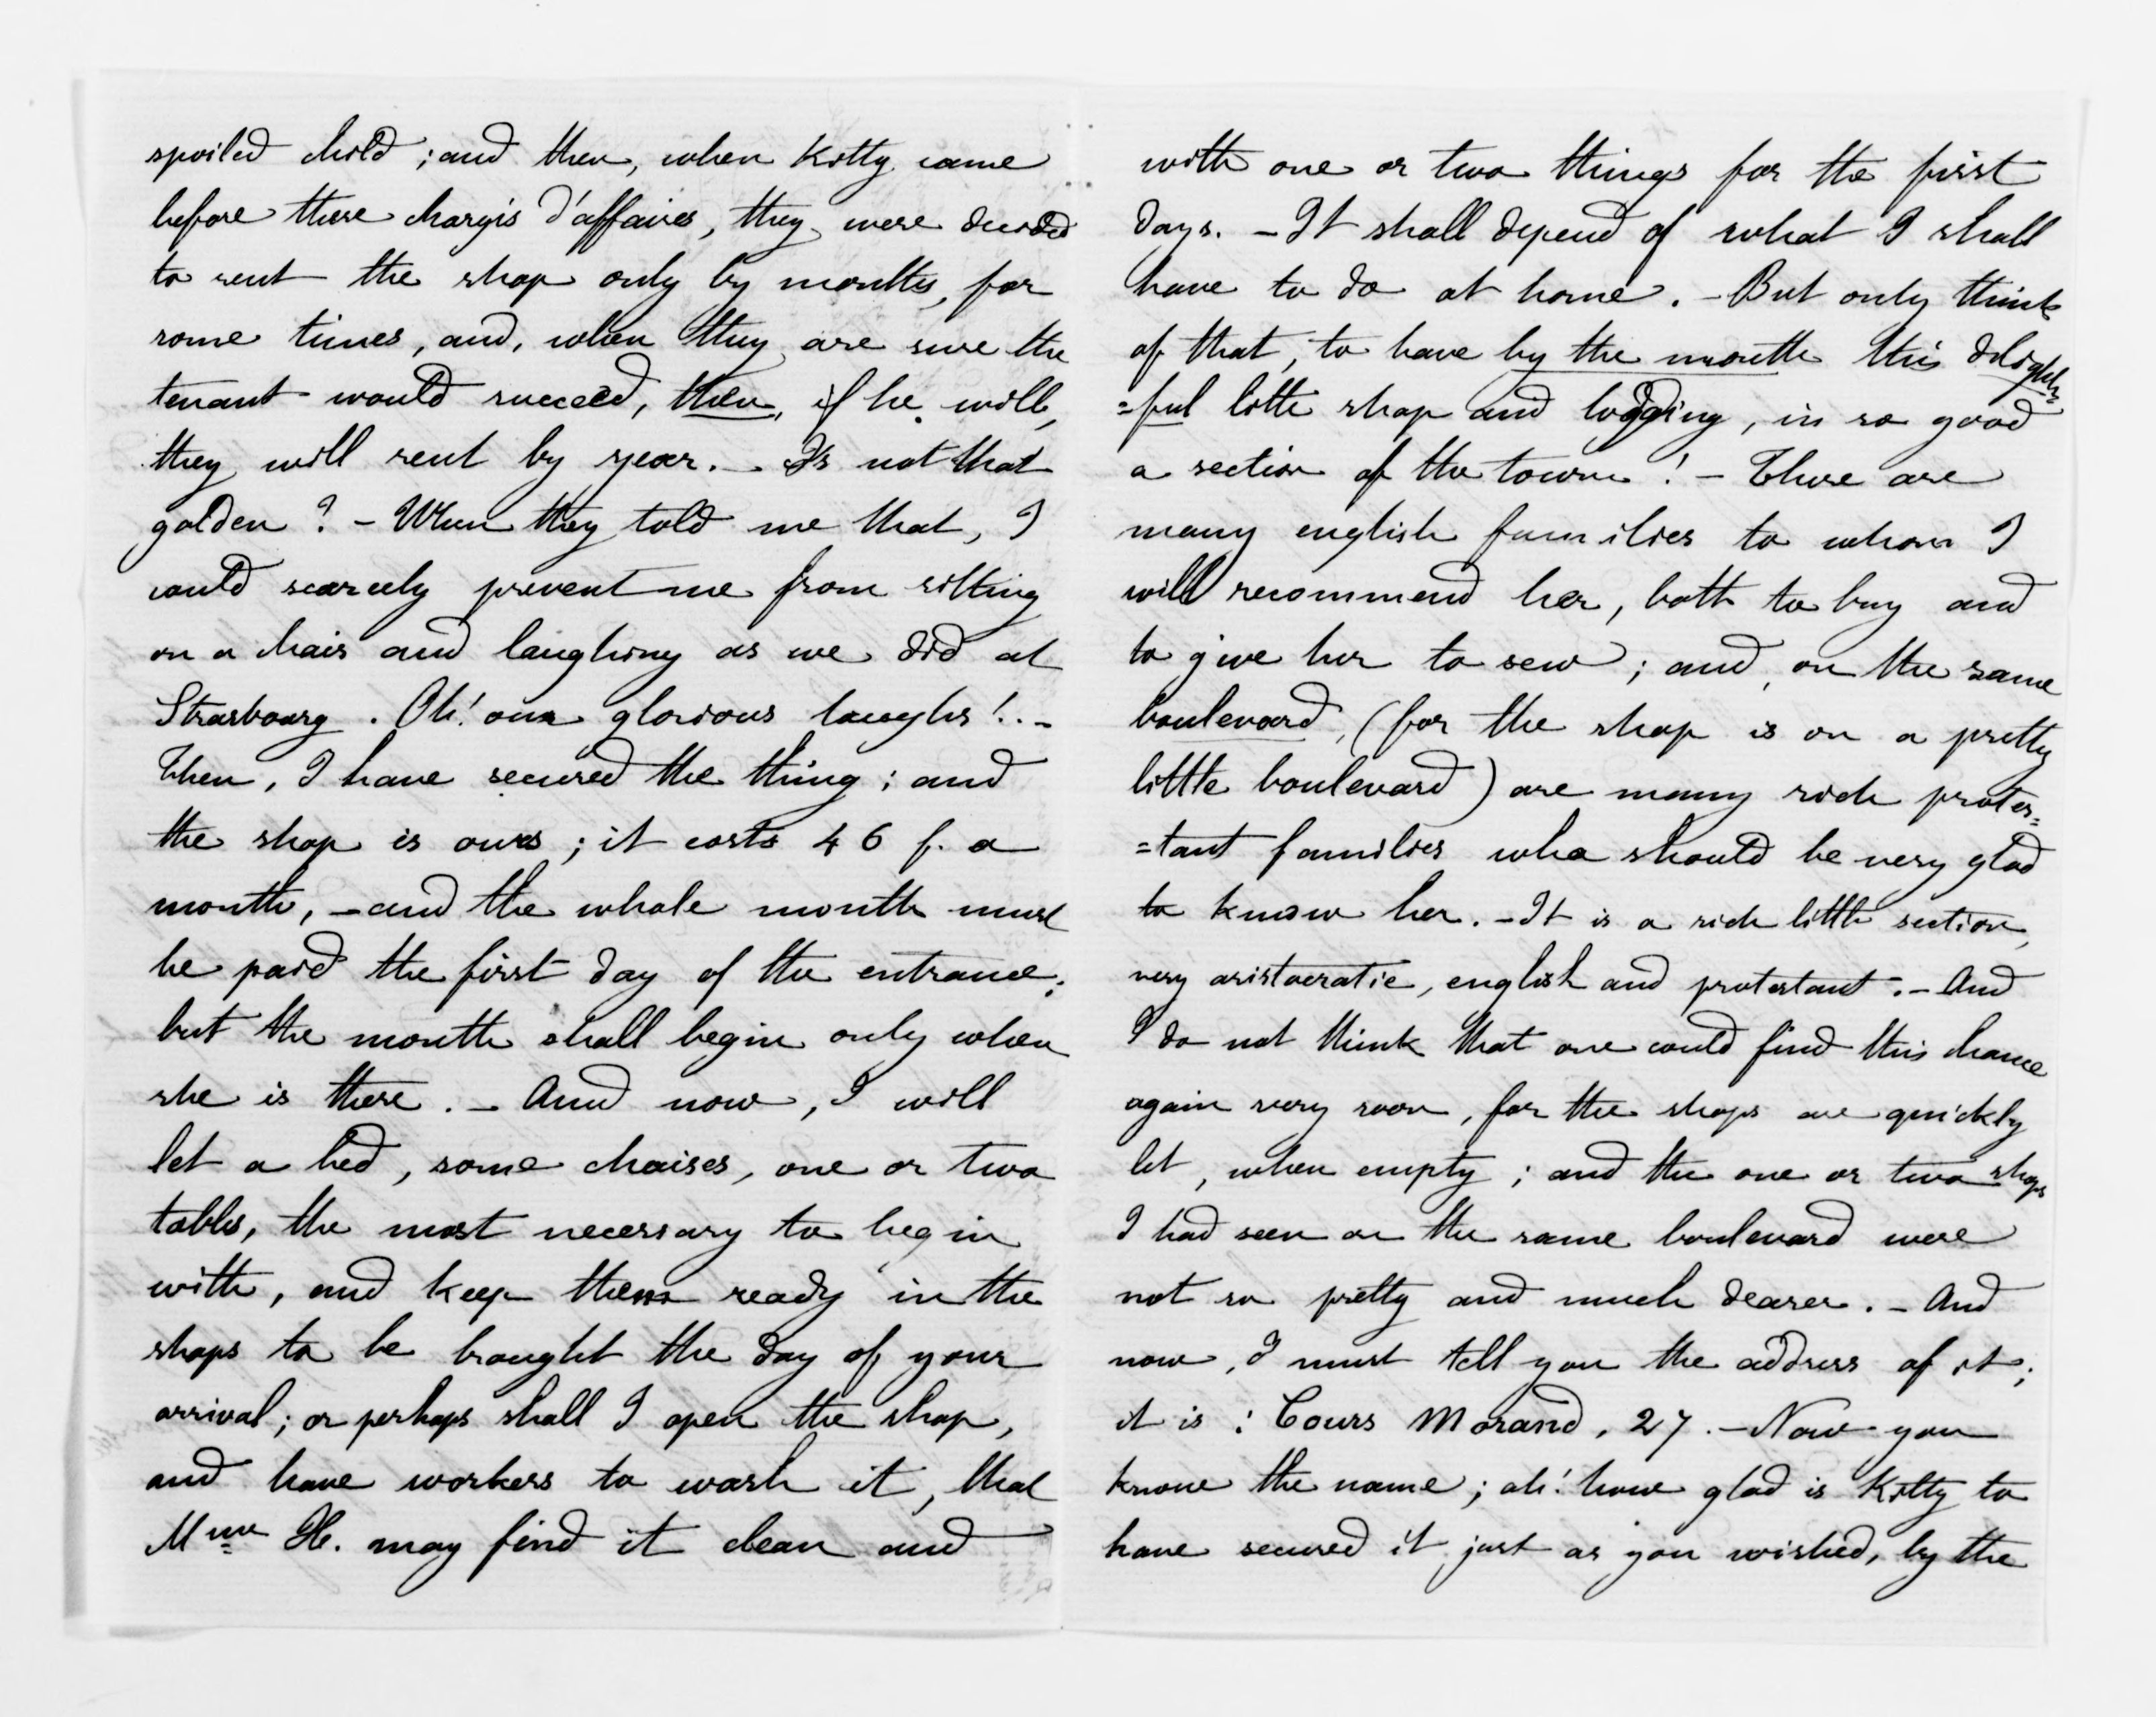 spoiled child ; and then, when Kitty came
before these chargés d'affaires, they were decided
to rent the shop only by months, for
some times, and, when they are sure the
tenant would succeed, then, if he will,
they will rent by year. - Is not that
golden ? - When they told me that, I
could scarcely prevent me from sitting
on a chair and laughing as we did at
Strasbourg . Oh! our glorious laughs !.. -
Then, I have secured the thing ; and
the shop is ours ; it costs 46 f. a
month, - and the whole month must
be paid the first day of the entrance ;
but the month shall begin only when
she is there . - And now, I will
let a bed, some chaises, one or two
tables, the most necessary to begin
with, and keep them ready in the
shops to be brought the day of your
arrival ; or perhaps shall I open the shop,
and have workers to wash it, that
Mme H. may find it clean and
with one or two things for the first
days. - It shall depend of what I shall
have to do at home . - But only think
of that, to have by the month this deligh=
=ful little shop and lodging, in so good
a section of the town ! - There are
many english families to whom I
will recommend her, both to buy and
to give her to sew ; and, on the same
boulevard, (for the shop is on a pretty
little boulevard) are many rich protes=
=tant families who should be very glad
to know her. - It is a rich little section,
very aristocratic, english and protestant . - And
I do not think that one could find this chance
again very soon, for the shops are quickly
let, when empty ; and the one or two shops
I had seen on the same boulevard were
not so pretty and much dearer . - And
now, I must tell you the address of it ;
it is : Cours Morand, 27 . - Now you
know the name ; ah! how glad is Kitty to
have secured it just as you wished, by the